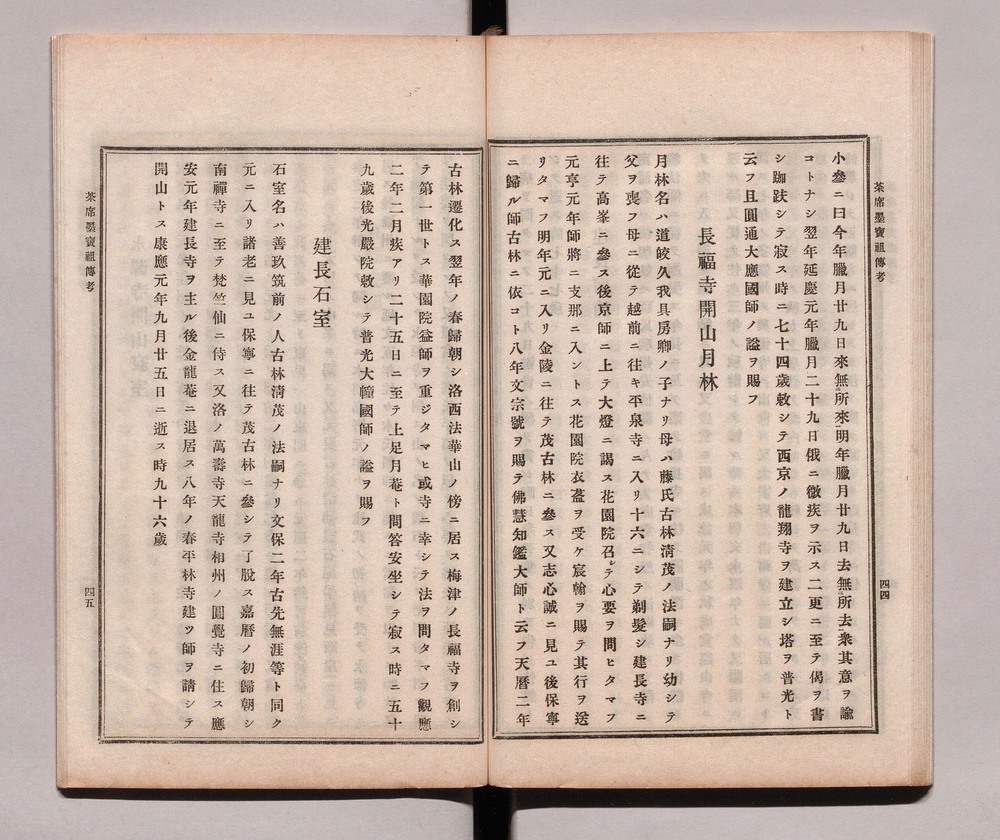 茶席墨寶祖傳考
小參ニ曰今年臘月廿九日來無所來明年臘月廿九日去無所去衆其意ヲ諭
コトナシ翌年延慶元年臘月二十九日俄ニ微疾ヲ示ス二更ニ至テ偈ヲ書
シ跏趺シテ寂ス時ニ七十四歳敕シテ西京ノ龍翔寺ヲ建立シ塔ヲ普光ト
云フ且圓通大應國師ノ謚ヲ賜フ
長福寺開山月林
月林名ハ道皎久我具房卿ノ子ナリ母ハ藤氏古林淸茂ノ法嗣ナリ幼シテ
父ヲ喪フ母ニ從テ越前ニ往キ平泉寺ニ入リ十六ニシテ剃髮シ建長寺ニ
往テ高峯ニ參ス後京師ニ上テ大燈ニ謁ス花園院召レテ心要ヲ問ヒタマフ
元亨元年師將ニ支那ニ入ントス花園院衣盋ヲ受ケ宸翰ヲ賜テ其行ヲ送
リタマフ明年元ニ入リ金陵ニ往テ茂古林ニ參ス又志心誠ニ見ユ後保寧
ニ歸ル師古林ニ依コト八年文宗號ヲ賜テ佛慧知鑑大師ト云フ天曆二年
四四
古林遷化ス翌年ノ春歸朝シ洛西法華山ノ傍ニ居ス梅津ノ長福寺ヲ創シ
テ第一世トス華園院益師ヲ重ジタマヒ或寺ニ幸シテ法ヲ問タマフ觀應
二年二月疾アリ二十五日ニ至テ上足月菴ト問答安坐シテ寂ス時ニ五十
九歳後光嚴院敕シテ普光大幢國師ノ謚ヲ賜フ
建長石室
石室名ハ善玖筑前ノ人古林淸茂ノ法嗣ナリ文保二年古先無涯等ト同ク
元ニ入リ諸老ニ見ユ保寧ニ往テ茂古林ニ參シテ了脫ス嘉曆ノ初歸朝シ
南禪寺ニ至テ梵竺仙ニ侍ス又洛ノ萬壽寺天龍寺相州ノ圓覺寺ニ住ス應
安元年建長寺ヲ主ル後金龍菴ニ退居ス八年ノ春平林寺建ツ師ヲ請シテ
開山トス康應元年九月廿五日ニ逝ス時九十六歳
茶席墨寶祖傳考
四五